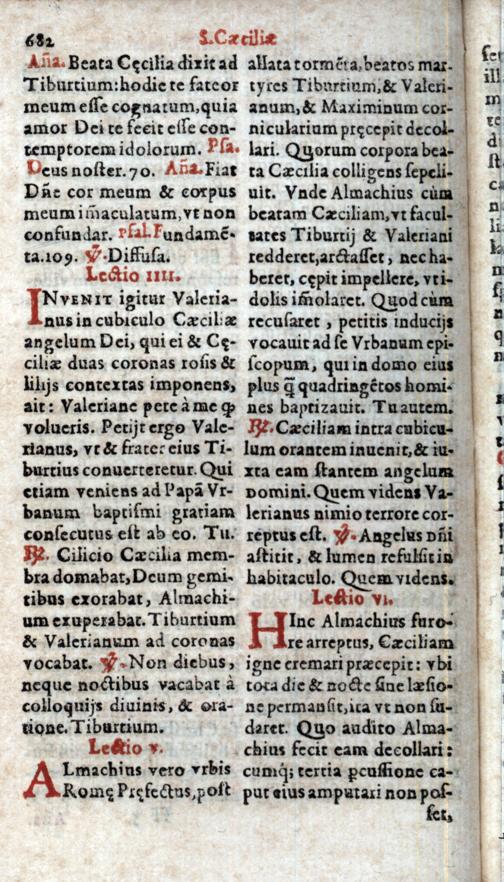 682
S. Cæciliæ
Aña. Beata Cęcilia dixit ad
Tiburtium: hodie te fateor
meum esse cognatum, quia
amor Dei te fecit esse con-
temptorem idolorum. Psa.
Deus noster. 70. Aña. Fiat
Dñe cor meum & corpus
meum im̃aculatum, vt non
confundar. psal. Fundamẽ-
ta. 109. ℣. Diffusa.
Lectio IIII.
INVENIT igitur Valeria-
nus in cubiculo Cæciliæ
angelum Dei, qui ei & Cę-
ciliæ duas coronas rosis &
lilijs contextas imponens,
ait: Valeriane pete à me ꝙ
volueris. Petijt ergo Vale-
rianus, vt & frater eius Ti-
burtius conuerteretur. Qui
etiam veniens ad Papã Vr-
banum baptismi gratiam
consecutus est ab eo. Tu.
℟. Cilicio Cæcilia mem-
bra domabat, Deum gemi-
tibus exorabat, Almachi-
um exuperabat. Tiburtium
& Valerianum ad coronas
vocabat. ℣. Non diebus,
neque noctibus vacabat à
colloquijs diuinis, & ora-
tione. Tiburtium.
Lectio v.
ALmachius vero vrbis
Romę Pręfectus, post
allata tormẽta, beatos mar-
tyres Tiburtium, & Valeri-
anum, & Maximinum cor-
nicularium pręcepit decol-
lari. Quorum corpora bea-
ta Cæcilia colligens sepeli-
uit. Vnde Almachius cùm
beatam Cæciliam, vt facul-
tates Tiburtij & Valeriani
redderet, arctasset, nec ha-
beret, cępit impellere, vt i-
dolis im̃olaret. Quod cùm
recusaret, petitis inducijs
vocauit ad se Vrbanum epi-
scopum, qui in domo eius
plus q̃ quadringẽtos homi-
nes baptizauit. Tu autem.
℟. Cæciliam intra cubicu-
lum orantem inuenit, & iu-
xta eam stantem angelum
Domini. Quem videns Va-
lerianus nimio terrore cor-
reptus est. ℣. Angelus Dñi
astitit, & lumen refulsit in
habitaculo. Quem videns.
Lectio vi.
HInc Almachius furo-
re arreptus, Cæciliam
igne cremari præcepit: vbi
tota die & nocte sine læsio-
ne permansit, ita vt non su-
daret. Quo audito Alma-
chius fecit eam decollari:
cumq; tertia ꝑcussione ca-
put eius amputari non pos-
set,